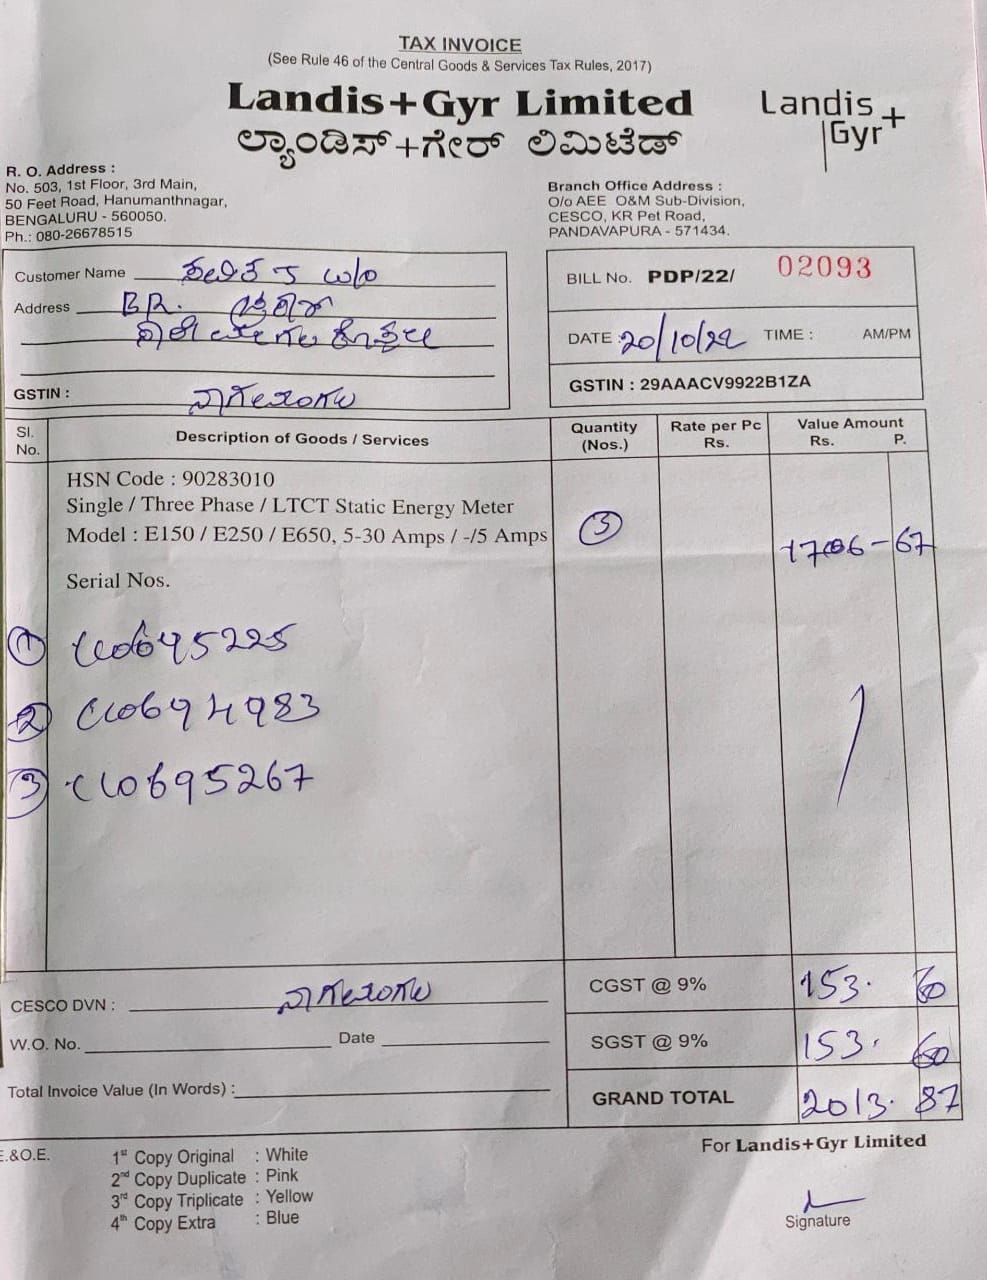 TAX INVOICE
(See Rule 46 of the Central Goods & Services Tax Rules, 2017)
Landis+Gyr Limited
ಲ್ಯಾಂಡಿಸ್+ಗೇರ್ ಲಿಮಿಟೆಡ್
Landis
Gyr+
R. O. Address :
No. 503, 1st Floor, 3rd Main,
50 Feet Road, Hanumanthnagar,
BENGALURU - 560050.
Ph.: 080-26678515
Branch Office Address :
O/o AEE O&M Sub-Division,
CESCO, KR Pet Road,
PANDAVAPURA - 571434.
Customer Name
Address BR.
GSTIN : ನಾಗಮಂಗಲ
BILL No. PDP/22/ 02093
DATE : 20/10/22 TIME : AM/PM
GSTIN : 29AAACV9922B1ZA
Sl. No. Description of Goods / Services Quantity (Nos.) Rate per Pc Rs. Value Amount Rs. P.
HSN Code : 90283010
Single / Three Phase / LTCT Static Energy Meter
Model : E150 / E250 / E650, 5-30 Amps / -/5 Amps 3 1706-67
Serial Nos.
1
2
3
CESCO DVN : ನಾಗಮಂಗಲ
W.O. No. Date
Total Invoice Value (In Words) :
CGST @ 9% 153. 60
SGST @ 9% 153. 60
GRAND TOTAL 2013. 87
E.&O.E.
1st Copy Original : White
2nd Copy Duplicate : Pink
3rd Copy Triplicate : Yellow
4th Copy Extra : Blue
For Landis+Gyr Limited
Signature